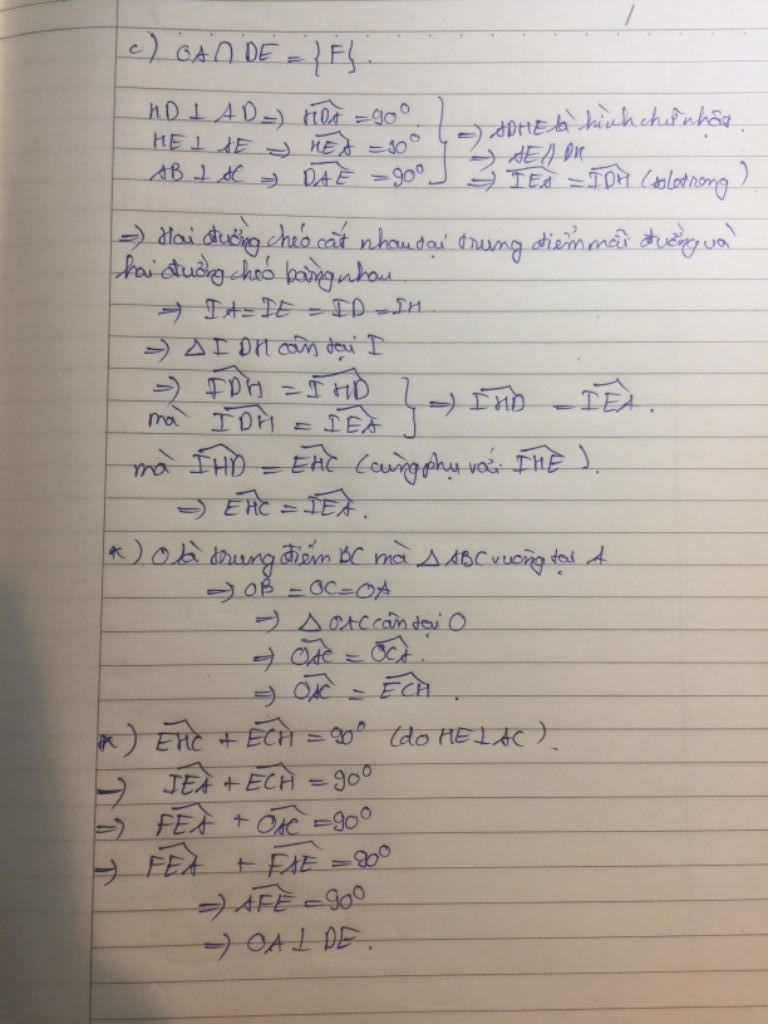 c) OA ∩ DE = {F}.
HD ⊥ AD ⇒ \widehat{HDA} = 90°
HE ⊥ AE ⇒ \widehat{HEA} = 90°
AB ⊥ AC ⇒ \widehat{DAE} = 90°
⇒ ADHE là hình chữ nhật.
⇒ AE // DH
⇒ \widehat{IEA} = \widehat{IDH} (so le trong)
⇒ Hai đường chéo cắt nhau tại trung điểm mỗi đường và
hai đường chéo bằng nhau
⇒ IA = IE = ID = IH.
⇒ Δ IDH cân tại I
⇒ \widehat{IDH} = \widehat{IHD}
mà \widehat{IDH} = \widehat{IEA}
⇒ \widehat{IHD} = \widehat{IEA}.
mà \widehat{IHD} = \widehat{EHC} (cùng phụ với \widehat{IHE}).
⇒ \widehat{EHC} = \widehat{IEA}.
*) O là trung điểm BC mà Δ ABC vuông tại A
⇒ OB = OC = OA
⇒ Δ OAC cân tại O
⇒ \widehat{OAC} = \widehat{OCA}.
⇒ \widehat{OAC} = \widehat{ECH}.
*) \widehat{EHC} + \widehat{ECH} = 90° (do HE ⊥ AC).
⇒ \widehat{IEA} + \widehat{ECH} = 90°
⇒ \widehat{FEA} + \widehat{OAC} = 90°
⇒ \widehat{FEA} + \widehat{FAE} = 90°
⇒ \widehat{AFE} = 90°
⇒ OA ⊥ DE.